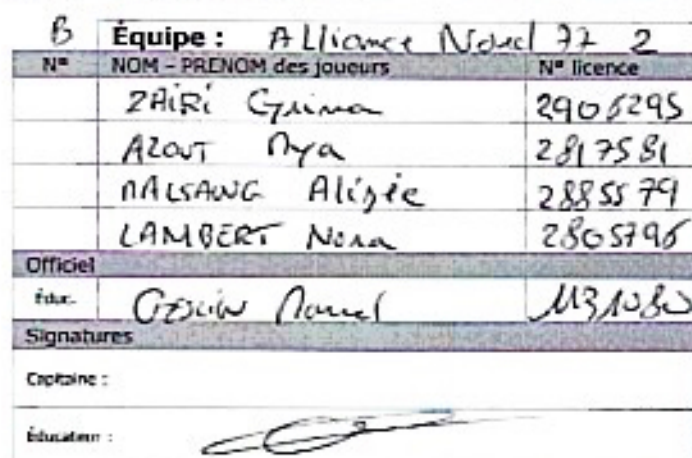 B Équipe : Alliance Nord 77 2
N° NOM - PRENOM des joueurs N° licence
ZAIRI 2906295
AZOUT Mya 2817581
MALSANG Alizée 2885579
LAMBERT Nora 2805796
Officiel
Éduc. 1131080
Signatures
Capitaine :
Éducateur :